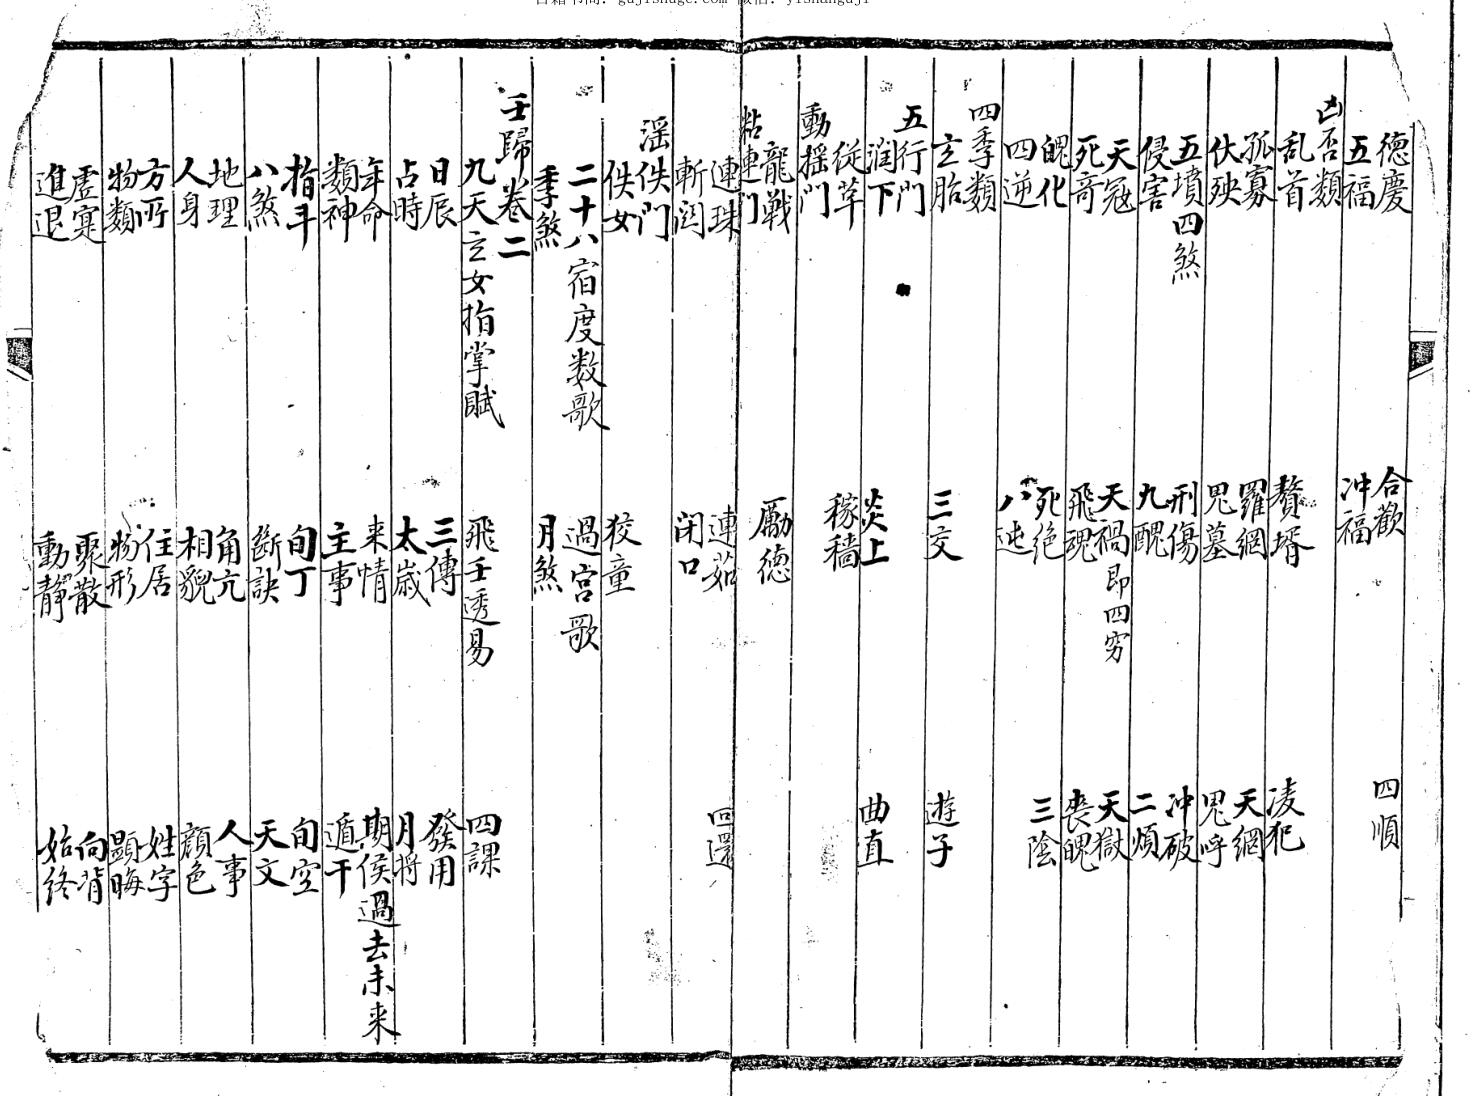 gujishuge.com 微信: yishanguji
德慶 合歡 四順
五福 冲福
凶否類
乱首 贅壻 凌犯
孤寡 羅網 天網
伏殃 鬼墓 鬼呼
五墳四煞 刑傷 冲破
侵害 九醜 二煩
天冦 天禍即四穷 天獄
死竒 飛魂 喪魄
魄化 死绝 三陰
四逆 八迍
四季類
玄胎 三交 遊子
五行門
润下 炎上 曲直
従革 稼穡
動摇門
龍戰 厲德
粘連門
連珠 連茹 回還
斬関 闭口
滛泆門
泆女 狡童
二十八宿度数歌 過宫歌
季煞 月煞
壬歸卷二
九天玄女指掌賦 飛壬透易 四課
日辰 三傳 發用
占時 太歲 月將
年命 来情 期侯過去未来
類神 主事 遁干
指斗 旬丁 旬空
八煞 斷訣 天文
地理 角亢 人事
人身 相貌 顔色
方所 住居 姓字
物類 物形 顯晦
虚寔 聚散 向背
進退 動靜 始终